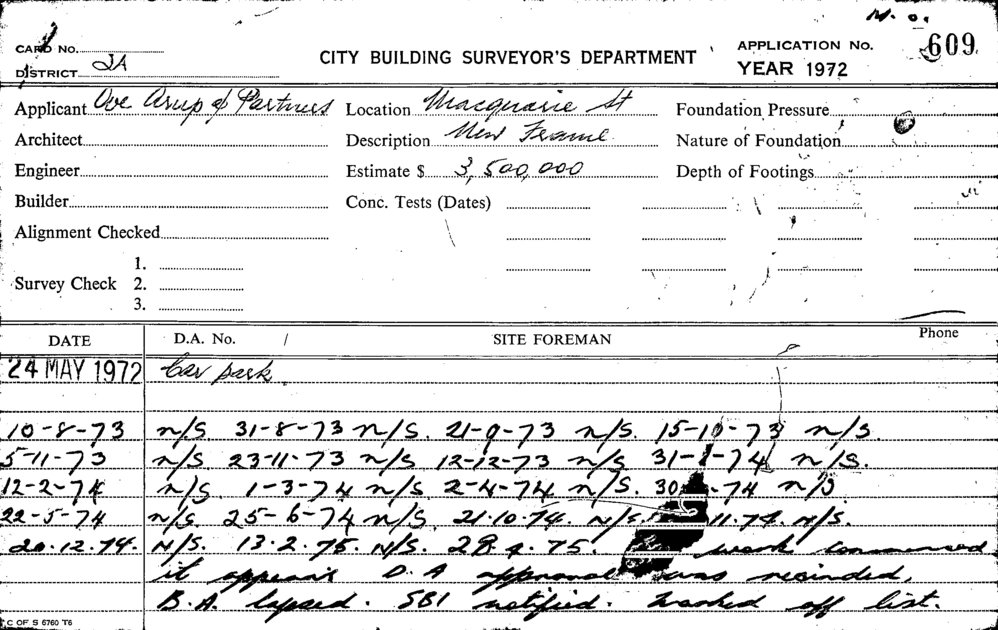 M. O.
CARD No.
CITY BUILDING SURVEYOR'S DEPARTMENT
APPLICATION No. 609
DISTRICT 2A
YEAR 1972
Applicant Ove Arup & Partners Location Macquarie St Foundation Pressure
Architect Description New Frame Nature of Foundation
Engineer Estimate $ 3,500,000 Depth of Footings
Builder Conc. Tests (Dates)
Alignment Checked
1.
Survey Check 2.
3.
DATE D.A. No. SITE FOREMAN Phone
24 MAY 1972 Car park
10-8-73 n/S. 31-8-73 n/S. 21-9-73 n/S. 15-10-73 n/S.
5-11-73 n/S 23-11-73 n/S 12-12-73 n/S. 31-1-74 n/S.
12-2-74 n/S. 1-3-74 n/S 2-4-74 n/S. 30 -74 n/S
22-5-74 n/S. 25-6-74 n/S. 21.10.74. N/S. 11.74. N/S.
20.12.74. N/S. 13.2.75. N/S. 28.4.75. work commenced
it appears D.A approval was recinded.
B.A. lapsed. SBI notified. Marked off list.
C OF S 6760 T6